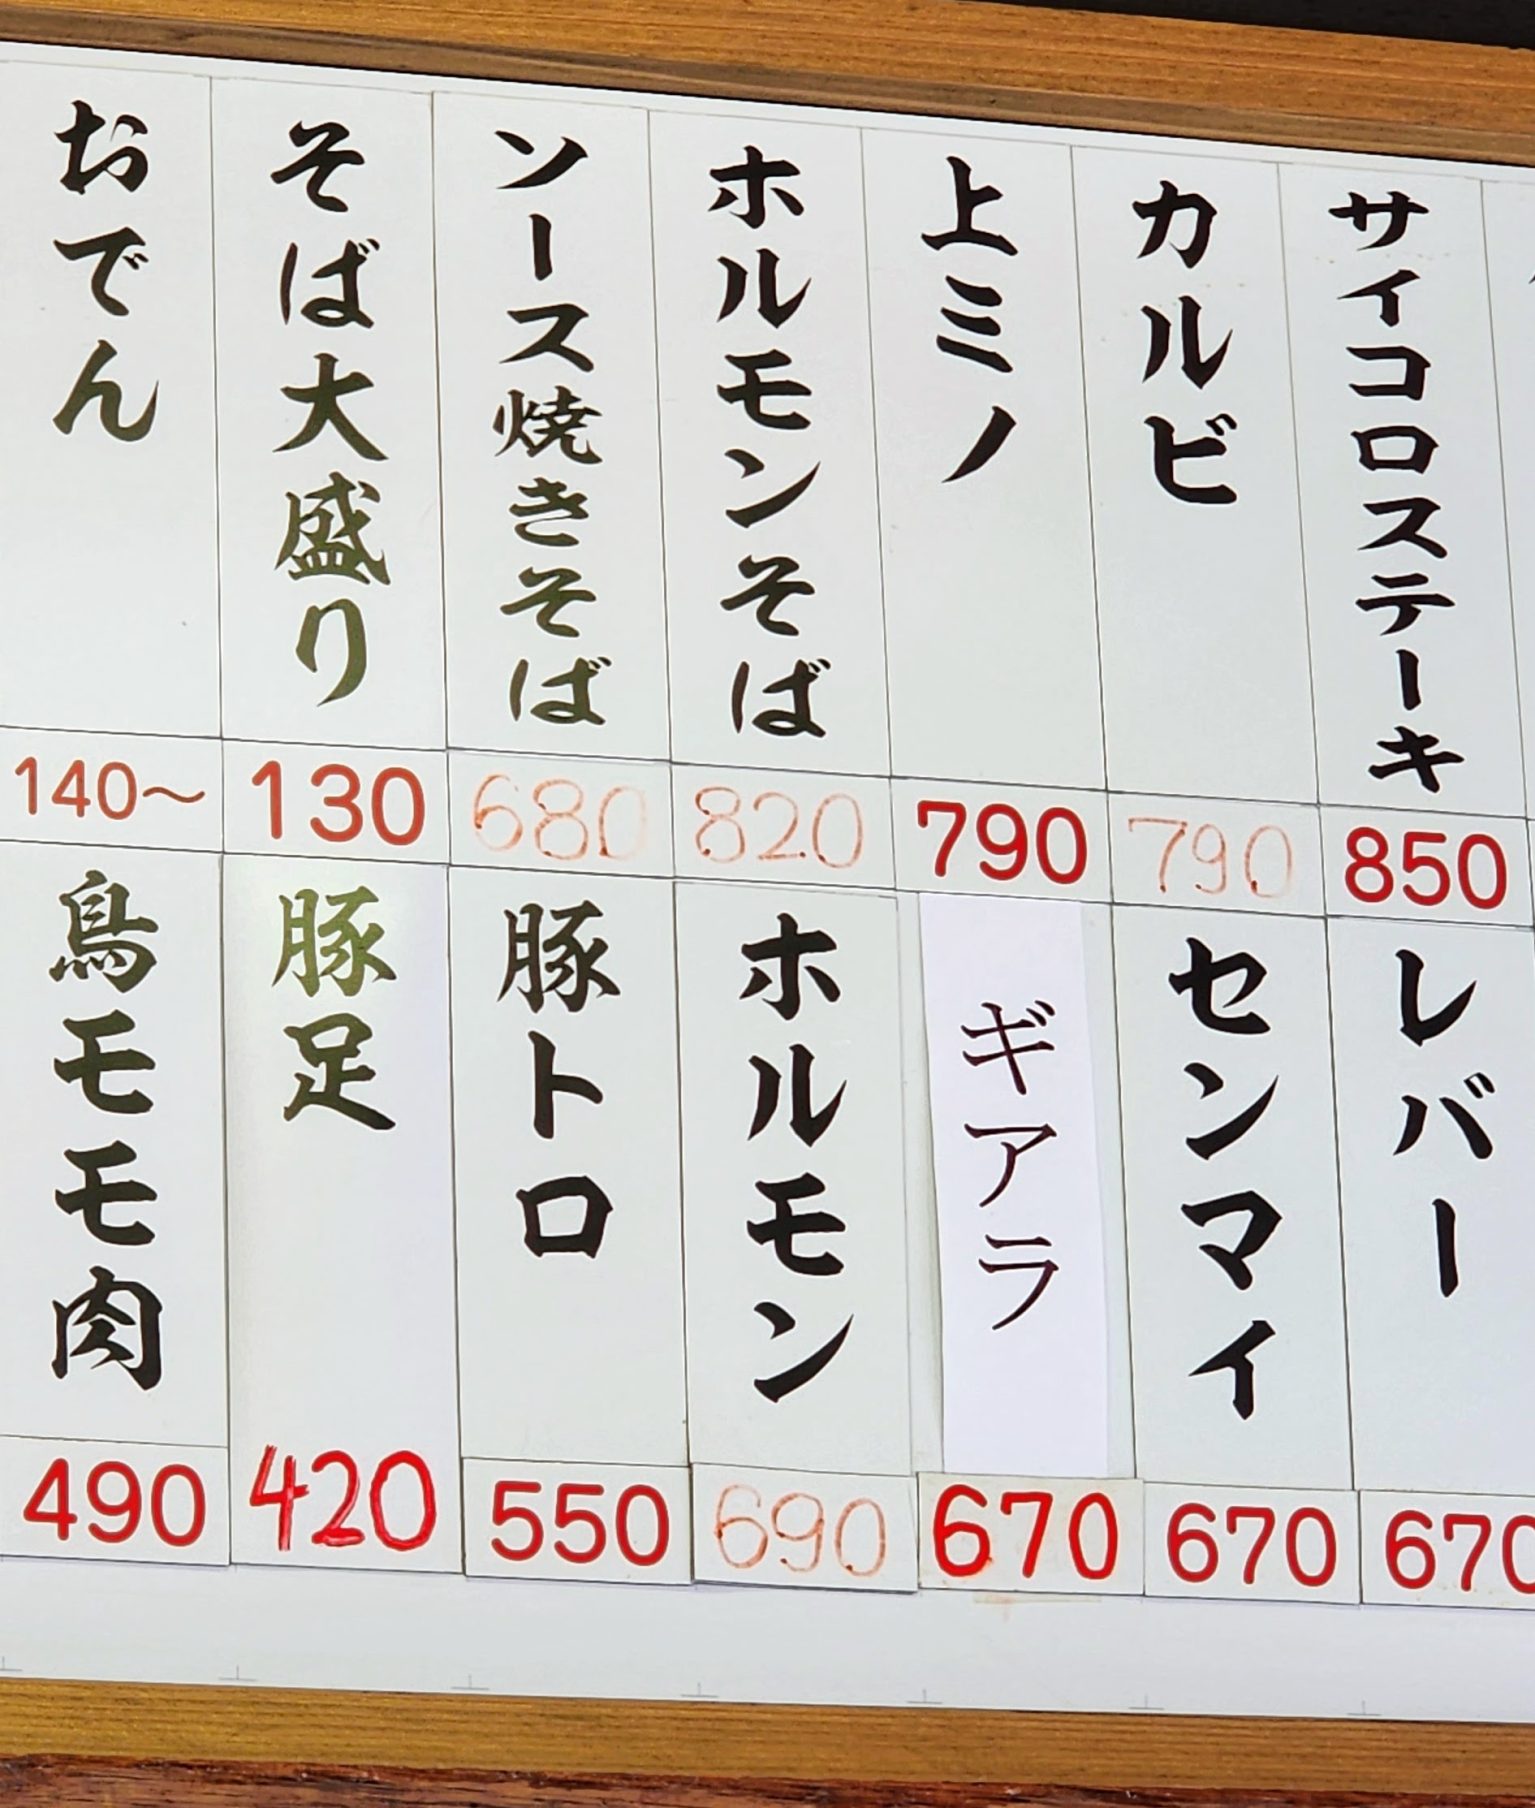 サイコロステーキ
850
カルビ
790
上ミノ
790
ホルモンそば
820
ソース焼きそば
680
そば大盛り
130
おでん
140～
レバー
670
センマイ
670
ギアラ
670
ホルモン
690
豚トロ
550
豚足
420
鳥モモ肉
490